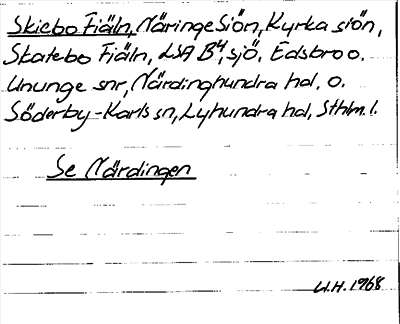 Skiebo Fiäln, Näringe Siön, Kyrka siön,
Skatebo Fiäln, LSA B4, sjö, Edsbro o.
Ununge snr, Närdinghundra hd, o.
Söderby-Karls sn, Lyhundra hd, Sthlm. l.
Se Närdingen
U.H. 1968